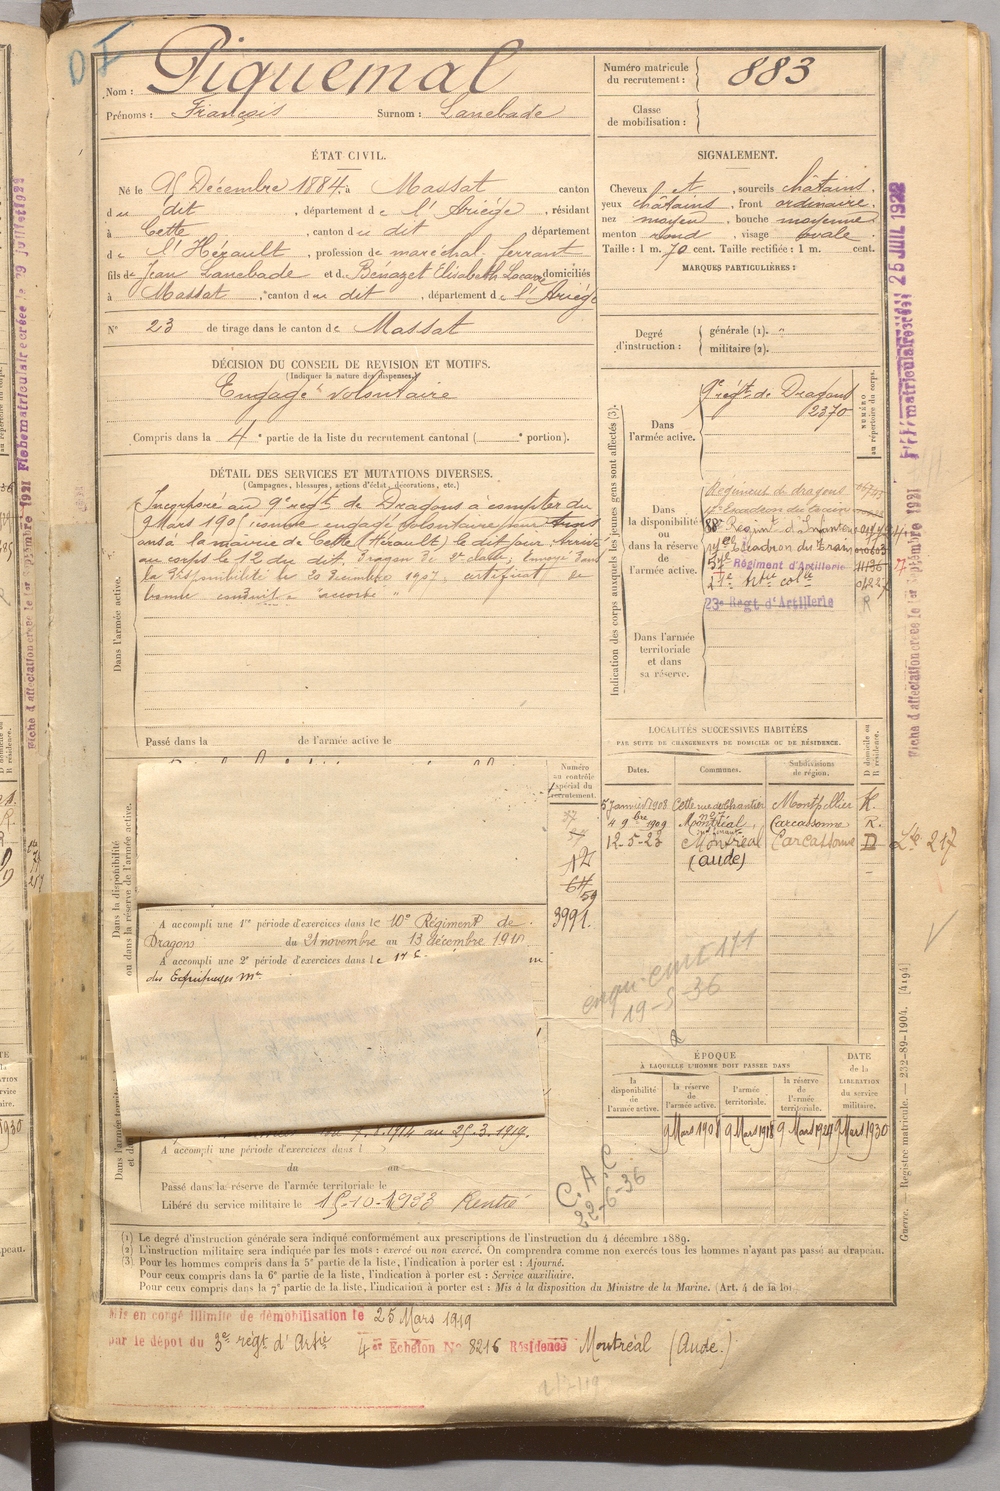 Nom : Piquemal
Prénoms : François Surnom : Lanebade
Numéro matricule du recrutement : 883
Classe de mobilisation :
ÉTAT CIVIL.
Né le Décembre 1884, à Massat canton
du dit, département de l'Ariège, résidant
à Cette, canton du dit département
de l'Hérault, profession de maréchal ferrant
fils de Jean Lanebade et de Bénazet Elisabeth domiciliés
à Massat, canton du dit, département de l'Ariège
N° 23 de tirage dans le canton de Massat
SIGNALEMENT.
Cheveux et, sourcils châtains.
yeux châtains, front ordinaire.
nez moyen, bouche moyenne
menton rond, visage ovale.
Taille : 1 m. 70 cent. Taille rectifiée : 1 m. cent.
MARQUES PARTICULIÈRES :
Degré d'instruction : générale (1). "
militaire (2).
DÉCISION DU CONSEIL DE REVISION ET MOTIFS.
(Indiquer la nature des dispenses.)
Engagé volontaire
Compris dans la 4e partie de la liste du recrutement cantonal ( e portion).
DÉTAIL DES SERVICES ET MUTATIONS DIVERSES.
(Campagnes, blessures, actions d'éclat, décorations, etc.)
Dans l'armée active.
Incorporé au 9e régt de Dragons à compter du
9 Mars 190 comme engagé volontaire pour trois
ans à la mairie de Cette (Hérault) le dit jour. Arrivé
au corps le 12 du dit. Dragon de 2e classe; Envoyé dans
la disponibilité le 20 décembre 1907. certificat de
bonne conduite "accordé"
Passé dans la de l'armée active le
Indication des corps auxquels les jeunes gens sont affectés (3).
NUMÉRO au répertoire du corps.
Dans l'armée active.
9e régt de Dragons
2370
Dans la disponibilité ou dans la réserve de l'armée active.
Régiment de dragons
17e Escadron du train
88e Régimt d'Infanterie
Escadron du Train
57e Régiment d'Artillerie
Artie colle
23e Régt d'Artillerie R
Dans l'armée territoriale et dans sa réserve.
LOCALITÉS SUCCESSIVES HABITÉES
PAR SUITE DE CHANGEMENTS DE DOMICILE OU DE RÉSIDENCE.
Dates. Communes. Subdivisions de région. D domicile ou R résidence.
5 Janvier 1908 Cette rue du Chantier Montpellier R.
4 9bre 1909 Montréal, Carcassonne R.
12-5-23 Montréal Carcassonne D
(aude)
Lte 217
Dans la disponibilité ou dans la réserve de l'armée active.
Numéro au contrôle spécial du recrutement.
37
12
64
59
3991.
A accompli une 1re période d'exercices dans le 10e Régiment de
Dragons du 21 novembre au 13 décembre 1910
A accompli une 2e période d'exercices dans le 17 e
des Equipages Mre
enqu. 171
19-5-36
ÉPOQUE
À LAQUELLE L'HOMME DOIT PASSER DANS
DATE de la LIBÉRATION du service militaire.
la disponibilité de l'armée active. la réserve de l'armée active. l'armée territoriale. la réserve de l'armée territoriale.
9 Mars 1908 9 Mars 1918 9 Mars 1924 9 Mars 1930
1914 au 25.3.1919.
A accompli une période d'exercices dans l
du au
Passé dans la réserve de l'armée territoriale le
Libéré du service militaire le 15-10-1933 Rentré
C.A.C.
22-6-36
(1) Le degré d'instruction générale sera indiqué conformément aux prescriptions de l'instruction du 4 décembre 1889.
(2) L'instruction militaire sera indiquée par les mots : exercé ou non exercé. On comprendra comme non exercés tous les hommes n'ayant pas passé au drapeau.
(3) Pour les hommes compris dans la 5e partie de la liste, l'indication à porter est : Ajourné.
Pour ceux compris dans la 6e partie de la liste, l'indication à porter est : Service auxiliaire.
Pour ceux compris dans la 7e partie de la liste, l'indication à porter est : Mis à la disposition du Ministre de la Marine. (Art. 4 de la loi
Mis en congé illimité de démobilisation le 25 Mars 1919
par le dépot du 3e régt d'Artie 4e Echelon No 8216 Résidence Montréal (Aude.)
Guerre. — Registre matricule. — 232-89-1904. [4194]
Fiche d'affectation créée le 1er septembre 1921
Fiche matriculaire créée le 25 JUIL 1922